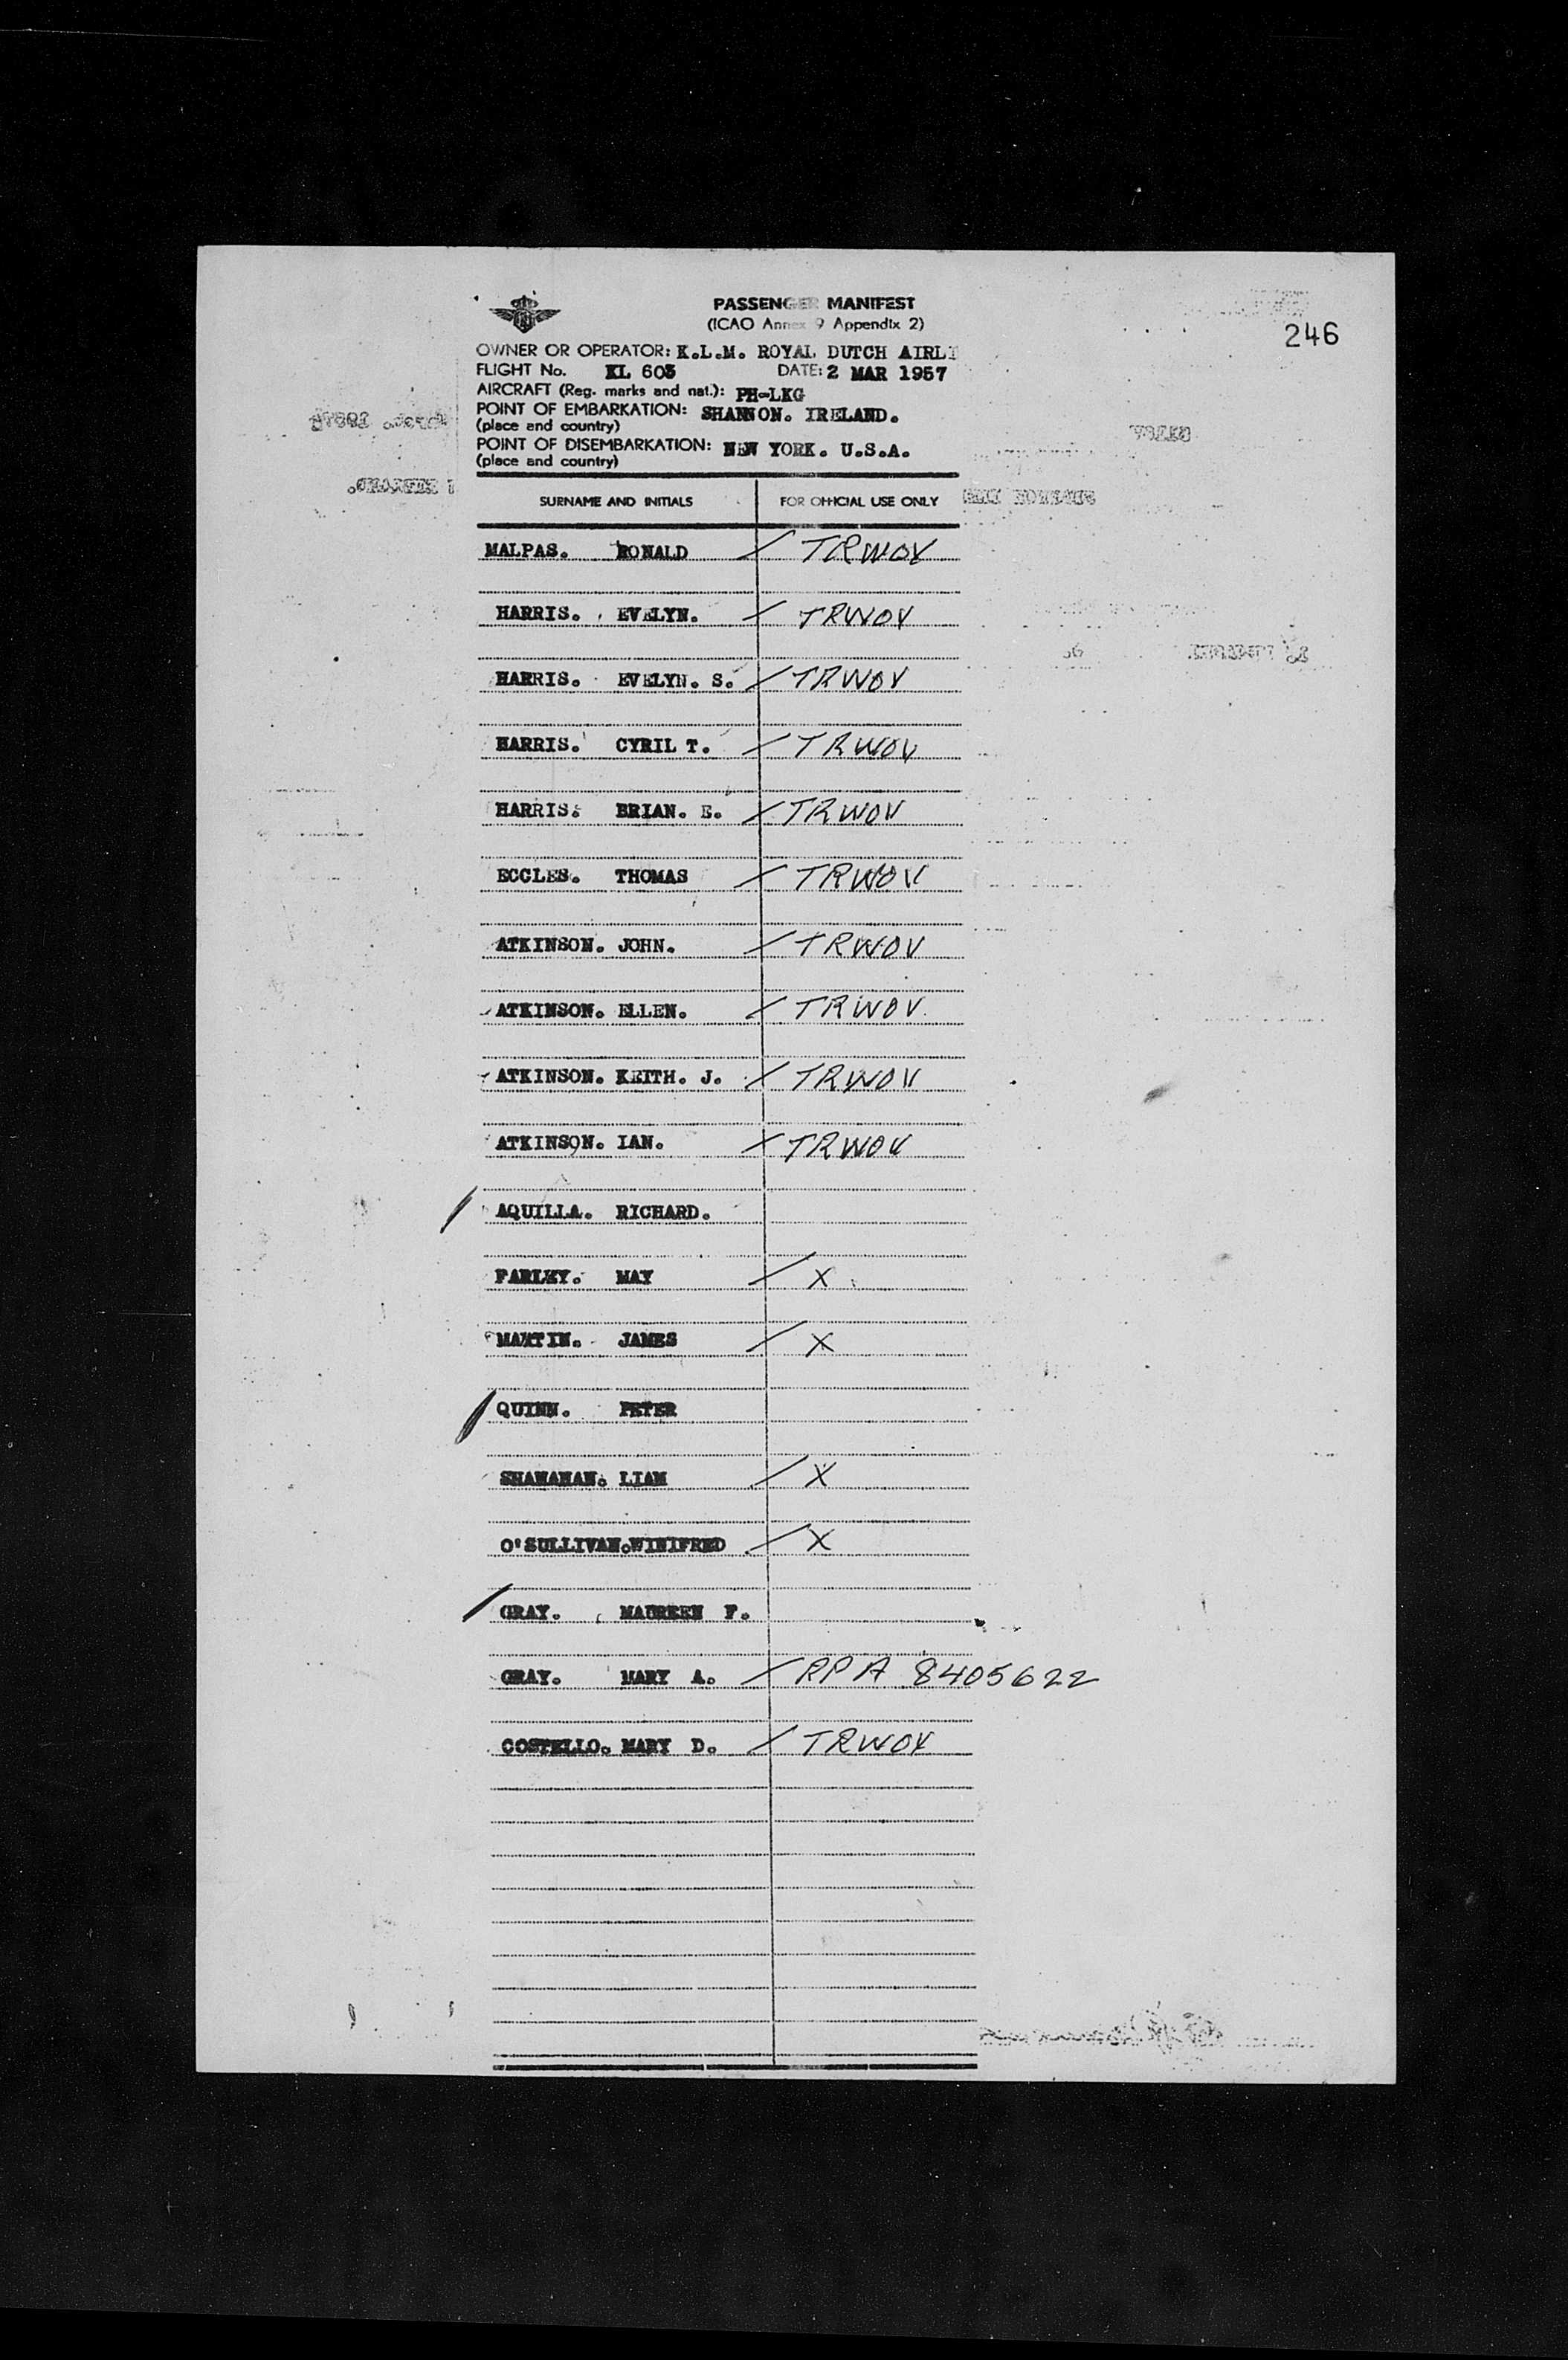 PASSENGER MANIFEST
(ICAO Annex 9 Appendix 2)
246
OWNER OR OPERATOR: K.L.M. ROYAL DUTCH AIRLI
FLIGHT No. KL 603 DATE: 2 MAR 1957
AIRCRAFT (Reg. marks and nat.): PH-LKG
POINT OF EMBARKATION: SHANNON. IRELAND.
(place and country)
POINT OF DISEMBARKATION: NEW YORK. U.S.A.
(place and country)
SURNAME AND INITIALS FOR OFFICIAL USE ONLY
MALPAS. RONALD / TRWOV
HARRIS. EVELYN. / TRWOV
HARRIS. EVELYN. S. / TRWOV
HARRIS. CYRIL T. / TRWOV
HARRIS. BRIAN. E. / TRWOV
ECCLES. THOMAS / TRWOV
ATKINSON. JOHN. / TRWOV
ATKINSON. ELLEN. / TRWOV
ATKINSON. KEITH. J. / TRWOV
ATKINSON. IAN. / TRWOV
/ AQUILLA. RICHARD.
FARLEY. MAY / X
MARTIN. JAMES / X
/ QUINN. PETER
SHANAHAN. LIAM / X
O'SULLIVAN. WINIFRED / X
/ GRAY. MAUREEN F.
GRAY. MARY A. / RPA 8405622
COSTELLO. MARY D. / TRWOV